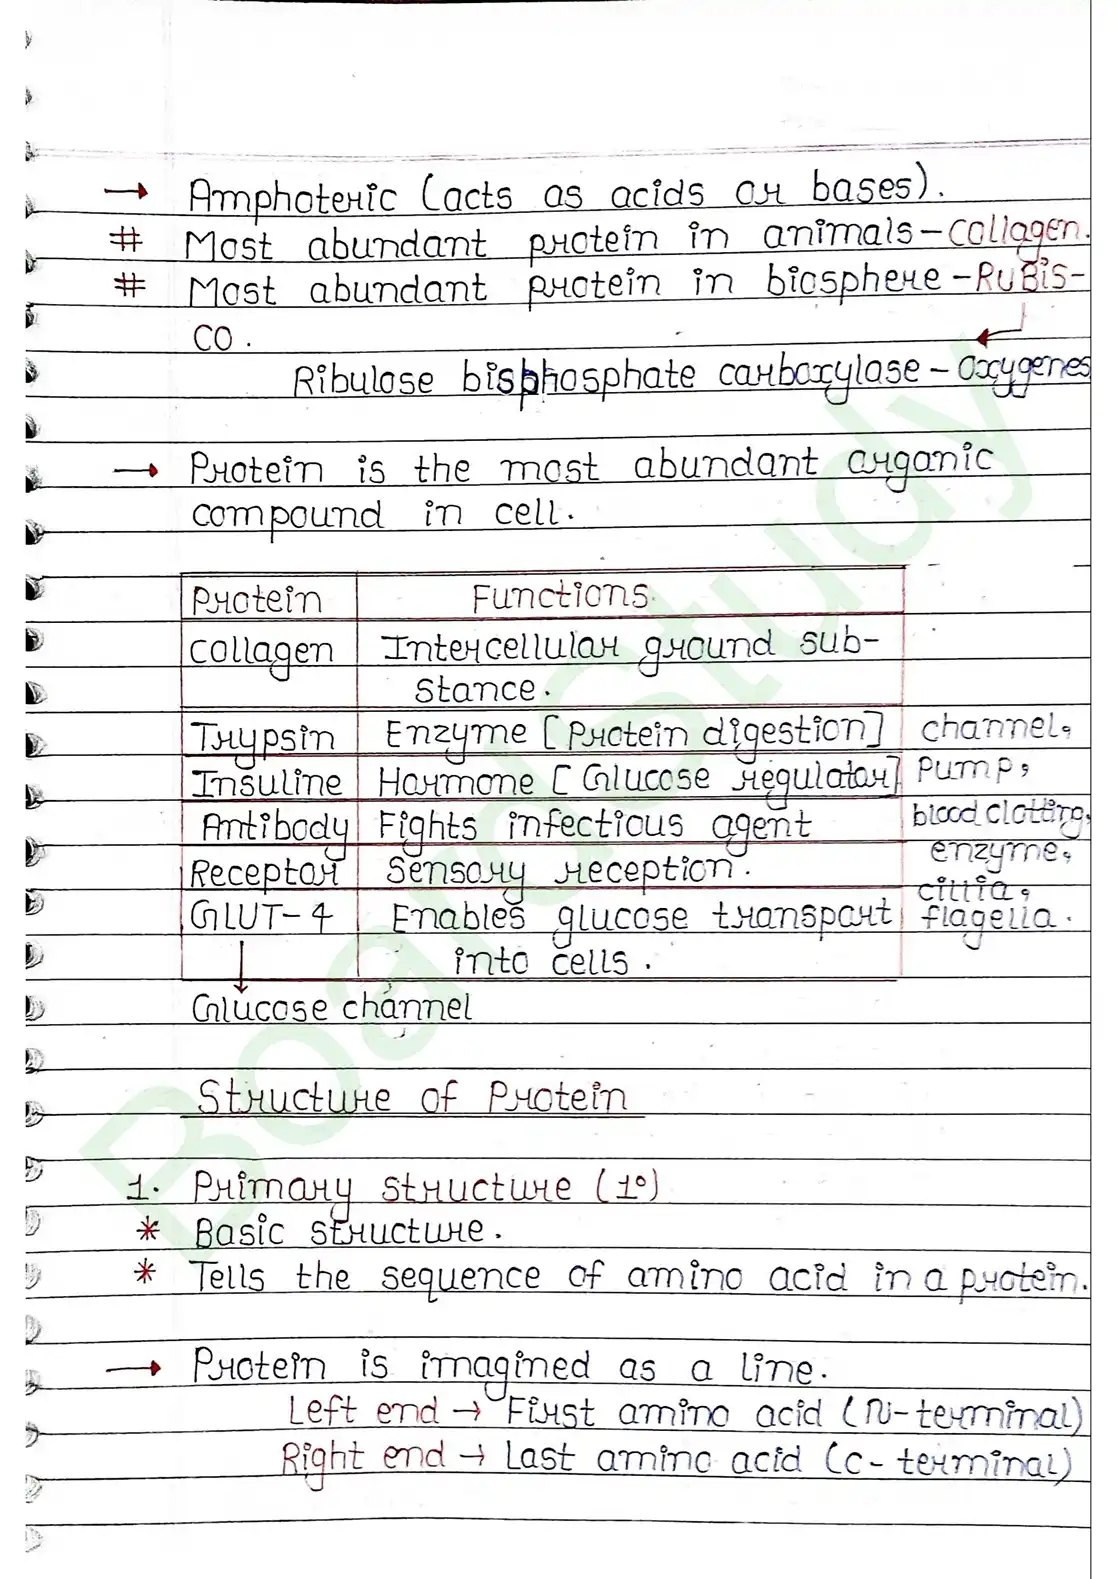 → Amphoteric (acts as acids or bases).
# Most abundant protein in animals - collagen.
# Most abundant protein in biosphere - RuBis-
CO.
Ribulose bisphosphate carboxylase - oxygenes
→ Protein is the most abundant organic
compound in cell.
Protein Functions
Collagen Intercellular ground sub-
stance.
Trypsin Enzyme [Protein digestion] channel,
Insuline Hormone [Glucose regulator] pump,
Antibody Fights infectious agent blood clotting,
enzyme,
Receptor Sensory reception.
cillia,
GLUT-4 Enables glucose transport flagella.
into cells.
↓
Glucose channel
Structure of Protein
1. Primary structure (1°)
* Basic structure.
* Tells the sequence of amino acid in a protein.
→ Protein is imagined as a line.
Left end → First amino acid (N-terminal)
Right end → Last amino acid (C-terminal)
BoardStudy